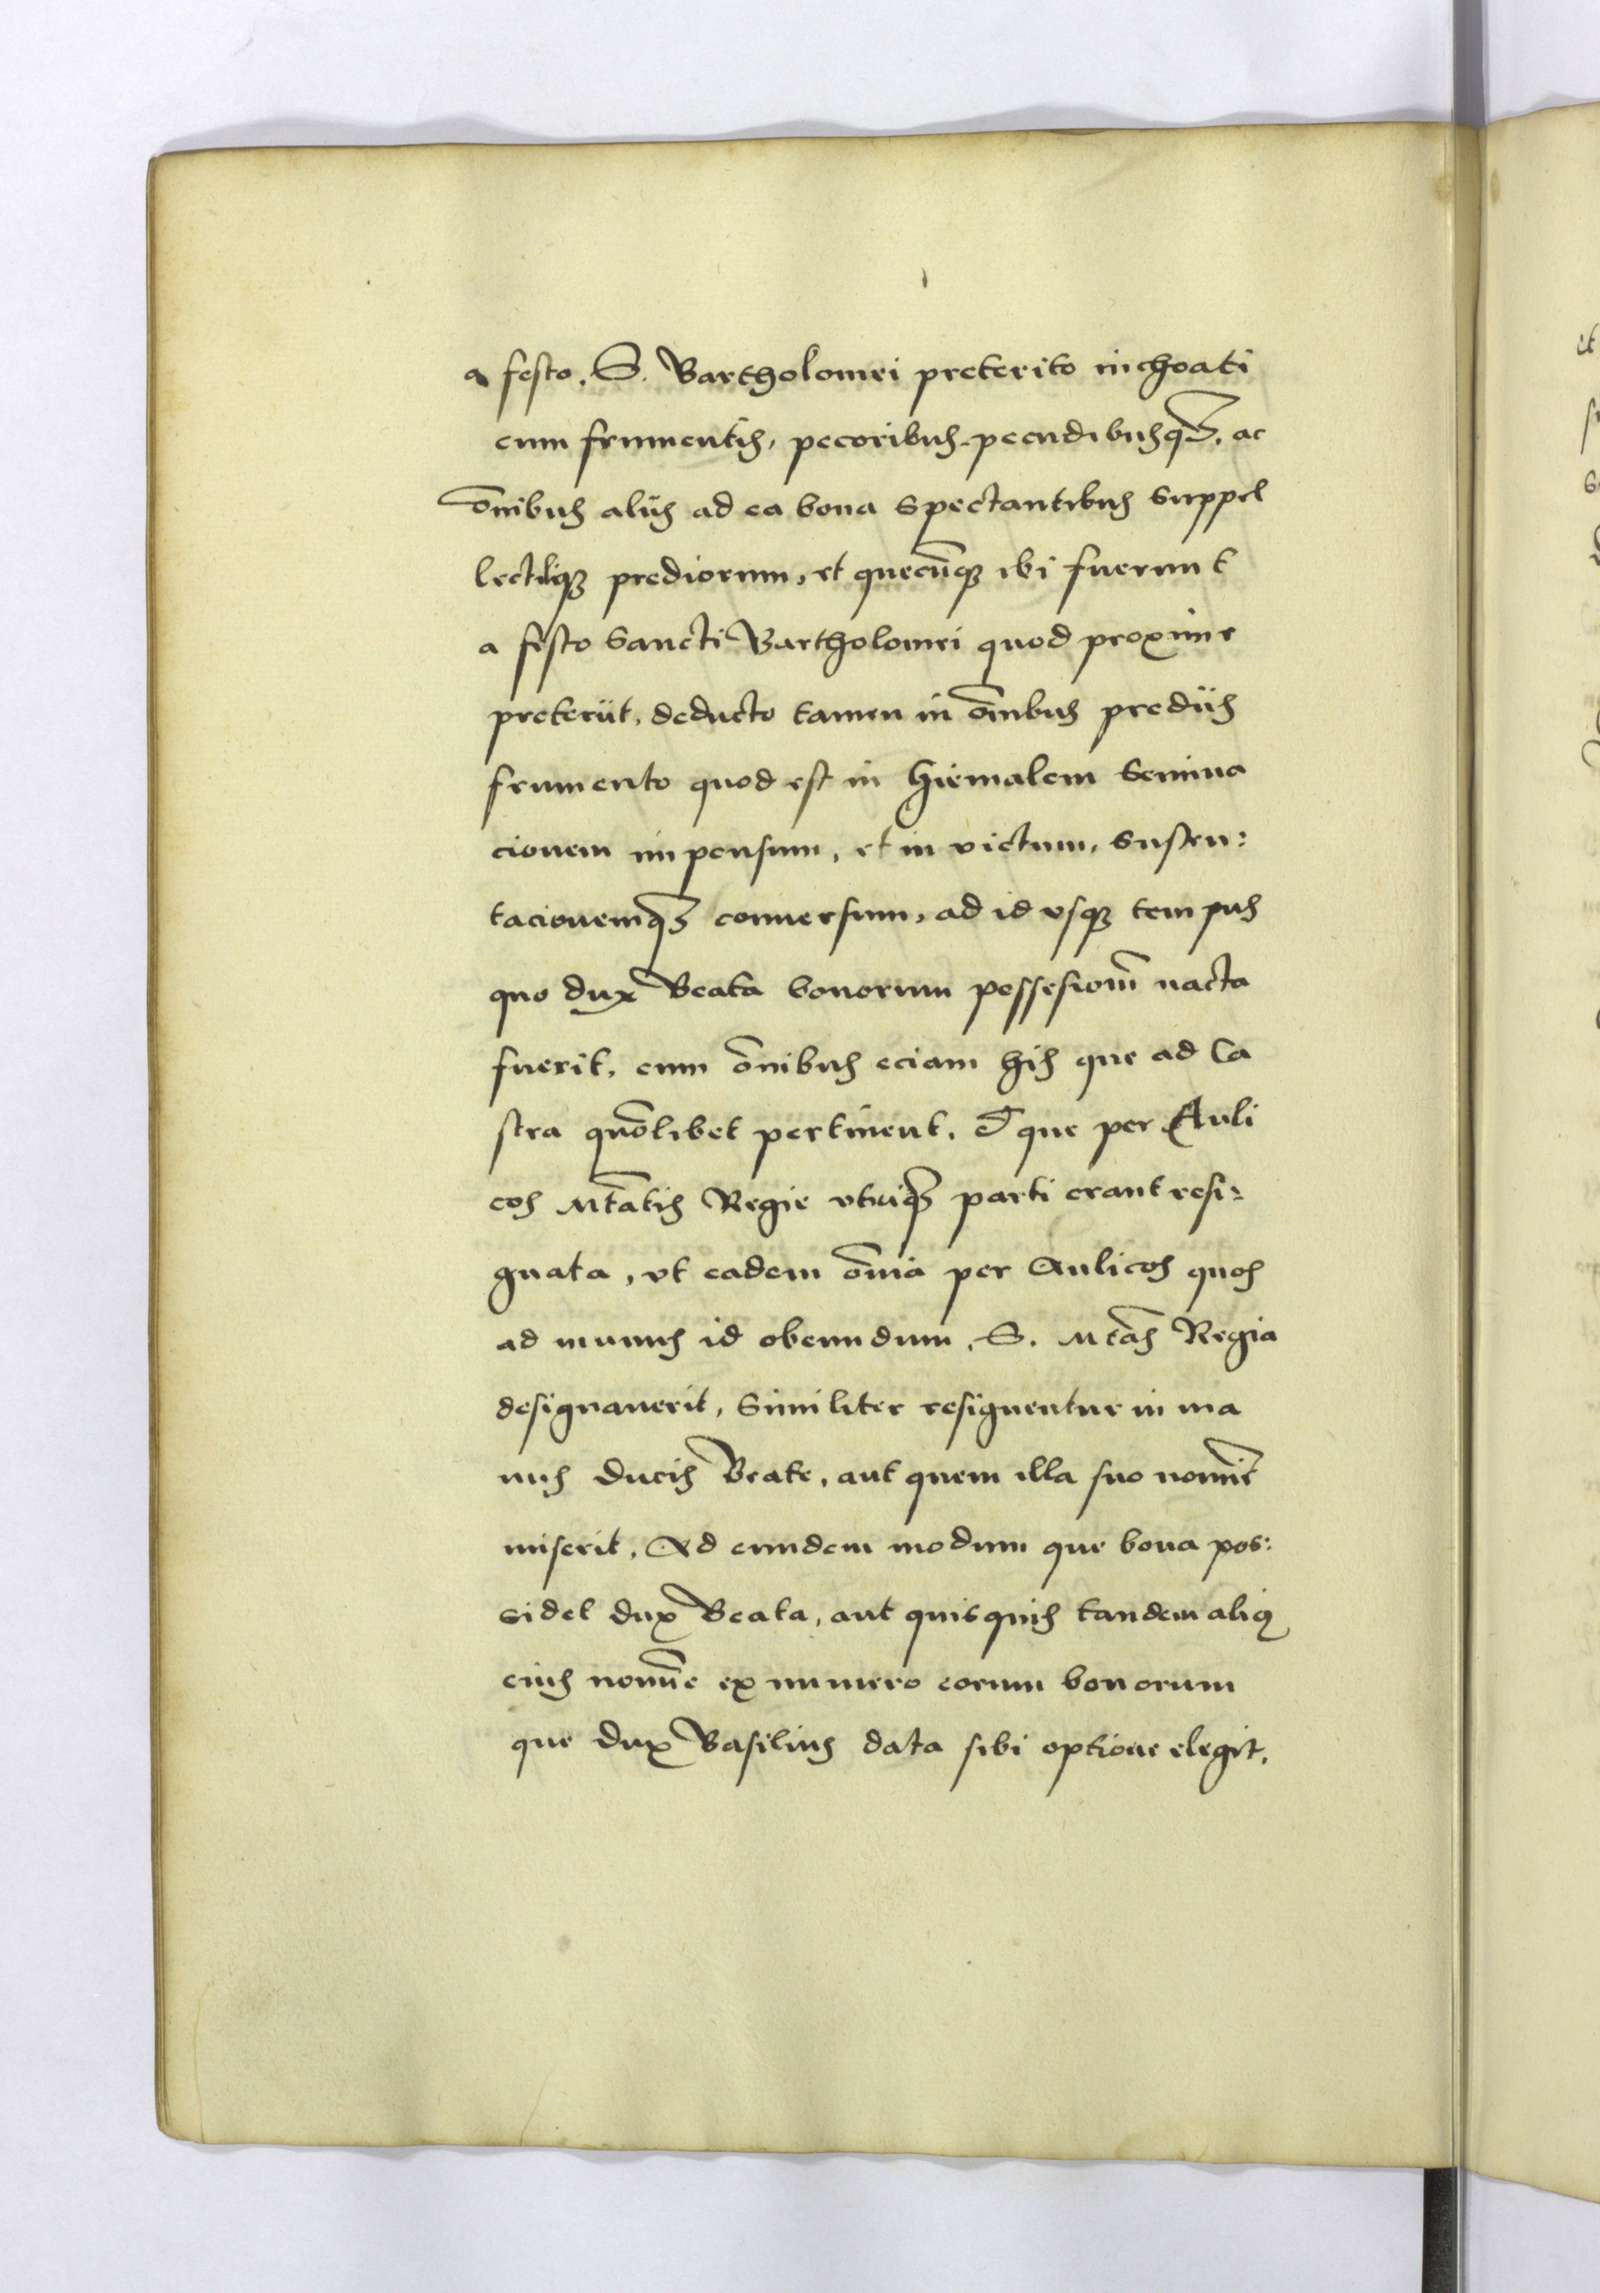 a festo. S. Bartholomei preterito inchoati
cum frumentis, pecoribus pecudibusq3, ac
o͞nibus aliis ad ea bona spectantibus suppel
lectiliq3 prediorum, et quecu͞q3 ibi fuerunt
a festo Sancti Bartholomei quod proxime
preteriit, deducto tamen in o͞nibus prediis
frumento quod est in hiemalem semina
cionem impensum, et in victum, susten:
tacionemq3 conuersum, ad id vsq3 tempus
quo dux Beata bonorum possesiom͞ nacta
fuerit, cum o͞nibus eciam his que ad Ca
stra quo͞libet pertinent. Et que per Auli
cos M͞tatis Regie vtriq3 parti erant resi:
gnata, vt eadem o͞nia per Aulicos quos
ad munus id obeundum, S. M͞tas Regia
designauerit, similiter resignentur in ma
nus Ducis Beate, aut quem illa suo nomi͞e
miserit. Ad eundem modum que bona pos:
sidet dux Beata, aut quisquis tandem aliq3
eius nomi͞e ex numero eorum bonorum
que Dux Basilius data sibi optione elegit,